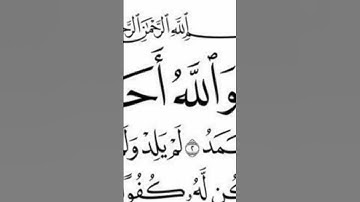 ـمِ ٱللَّهِ ٱلرَّحْمَٰنِ ٱلرَّحـ
وَٱللَّهُ أَحَـ
ـمَدُ ٢ لَمْ يَلِدْ وَلَـ
ـكُن لَّهُۥ كُفُوً